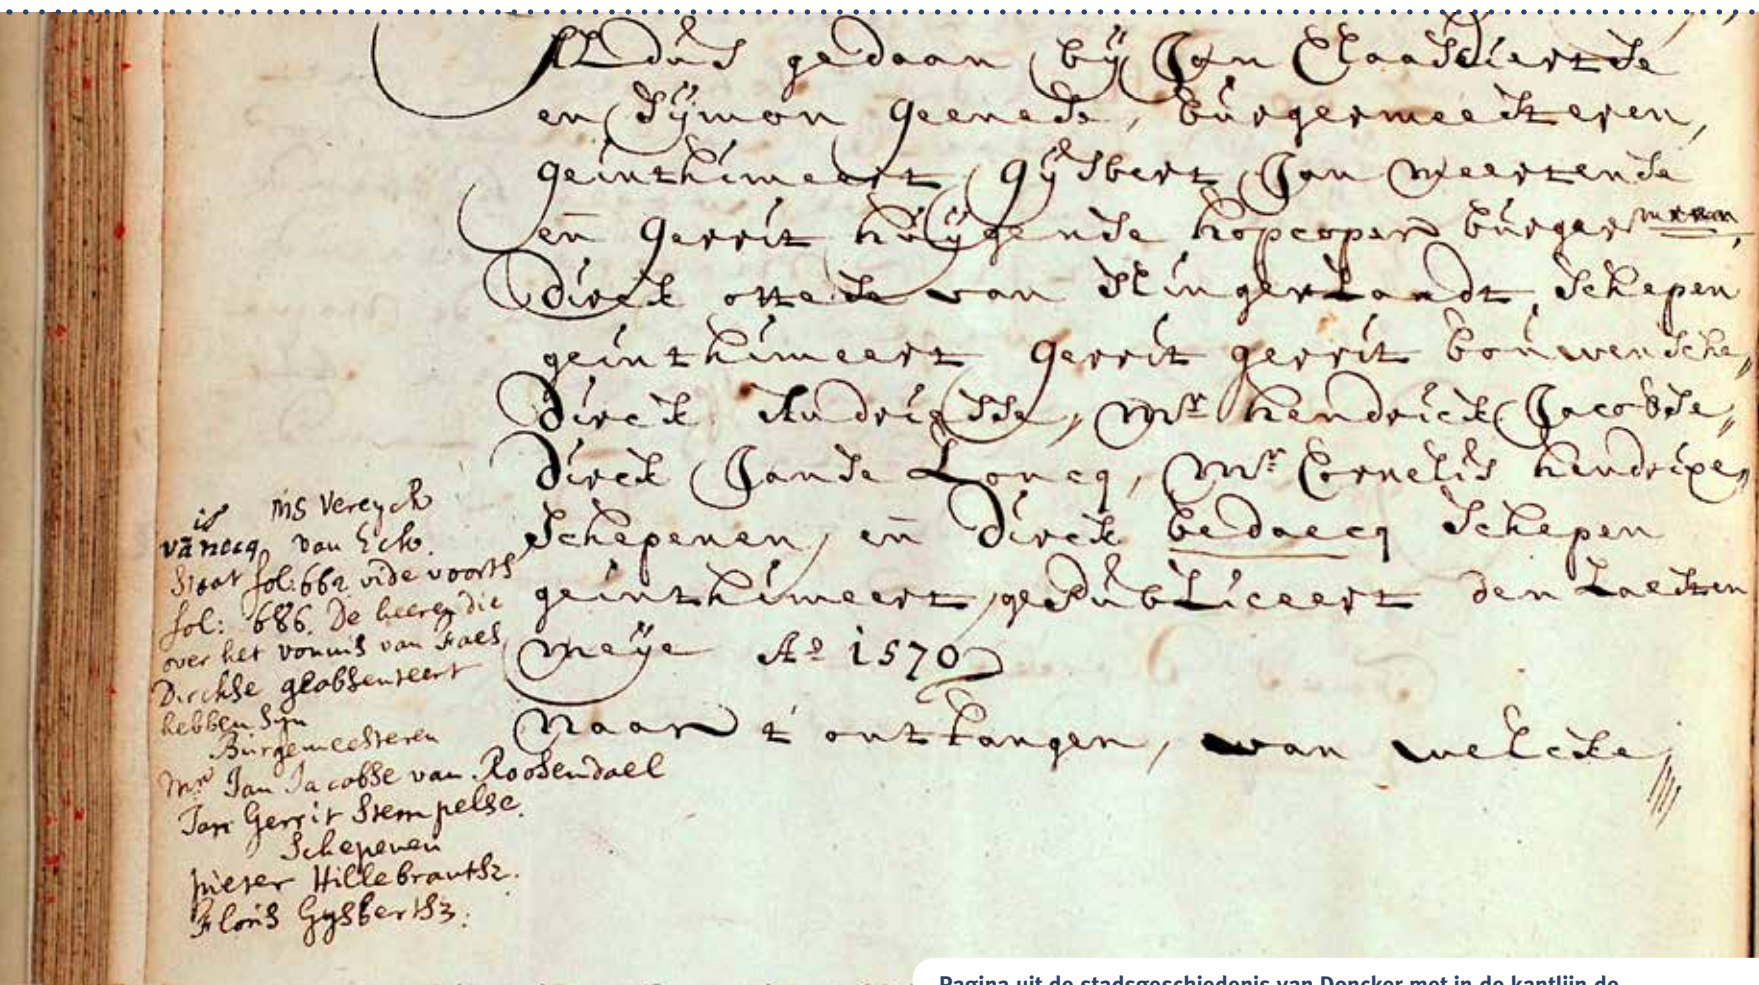 Aldus gedaan bij Jan Claas
en Sijmon geenesse, burgermeesteren,
geinthimeert, Gijsbert Jan meertensse
en Gerrit huijgensse hopcoper burger
dirck ottesse van slingerlandt, schepen
geinthimeert gerrit gerrit bouwensche,
dirck Andriesse, Mr hendrick Jacobsse,
dirck Jansse Loncq, Mr Cornelis hendrixe,
schepenen, en dirck bedaecq schepen
geinthimeert, gepubliceert den Laesten
meije Ao 1570
naar t ontfangen, van welcke
is ms Vereyck
van Eck.
staat fol: 662 vide voorts
fol: 686. De heeren die
over het vonnis van Faes
Dirckse geabsenteert
hebben sijn
Burgemeesteren
Mr Jan Jacobse van Roosendael
Jan Gerrit Stempelse.
Schepenen
pieter Hillebrantsz.
Floris Gysbertsz:
Pagina uit de stadsgeschiedenis van Doncker met in de kantlijn de